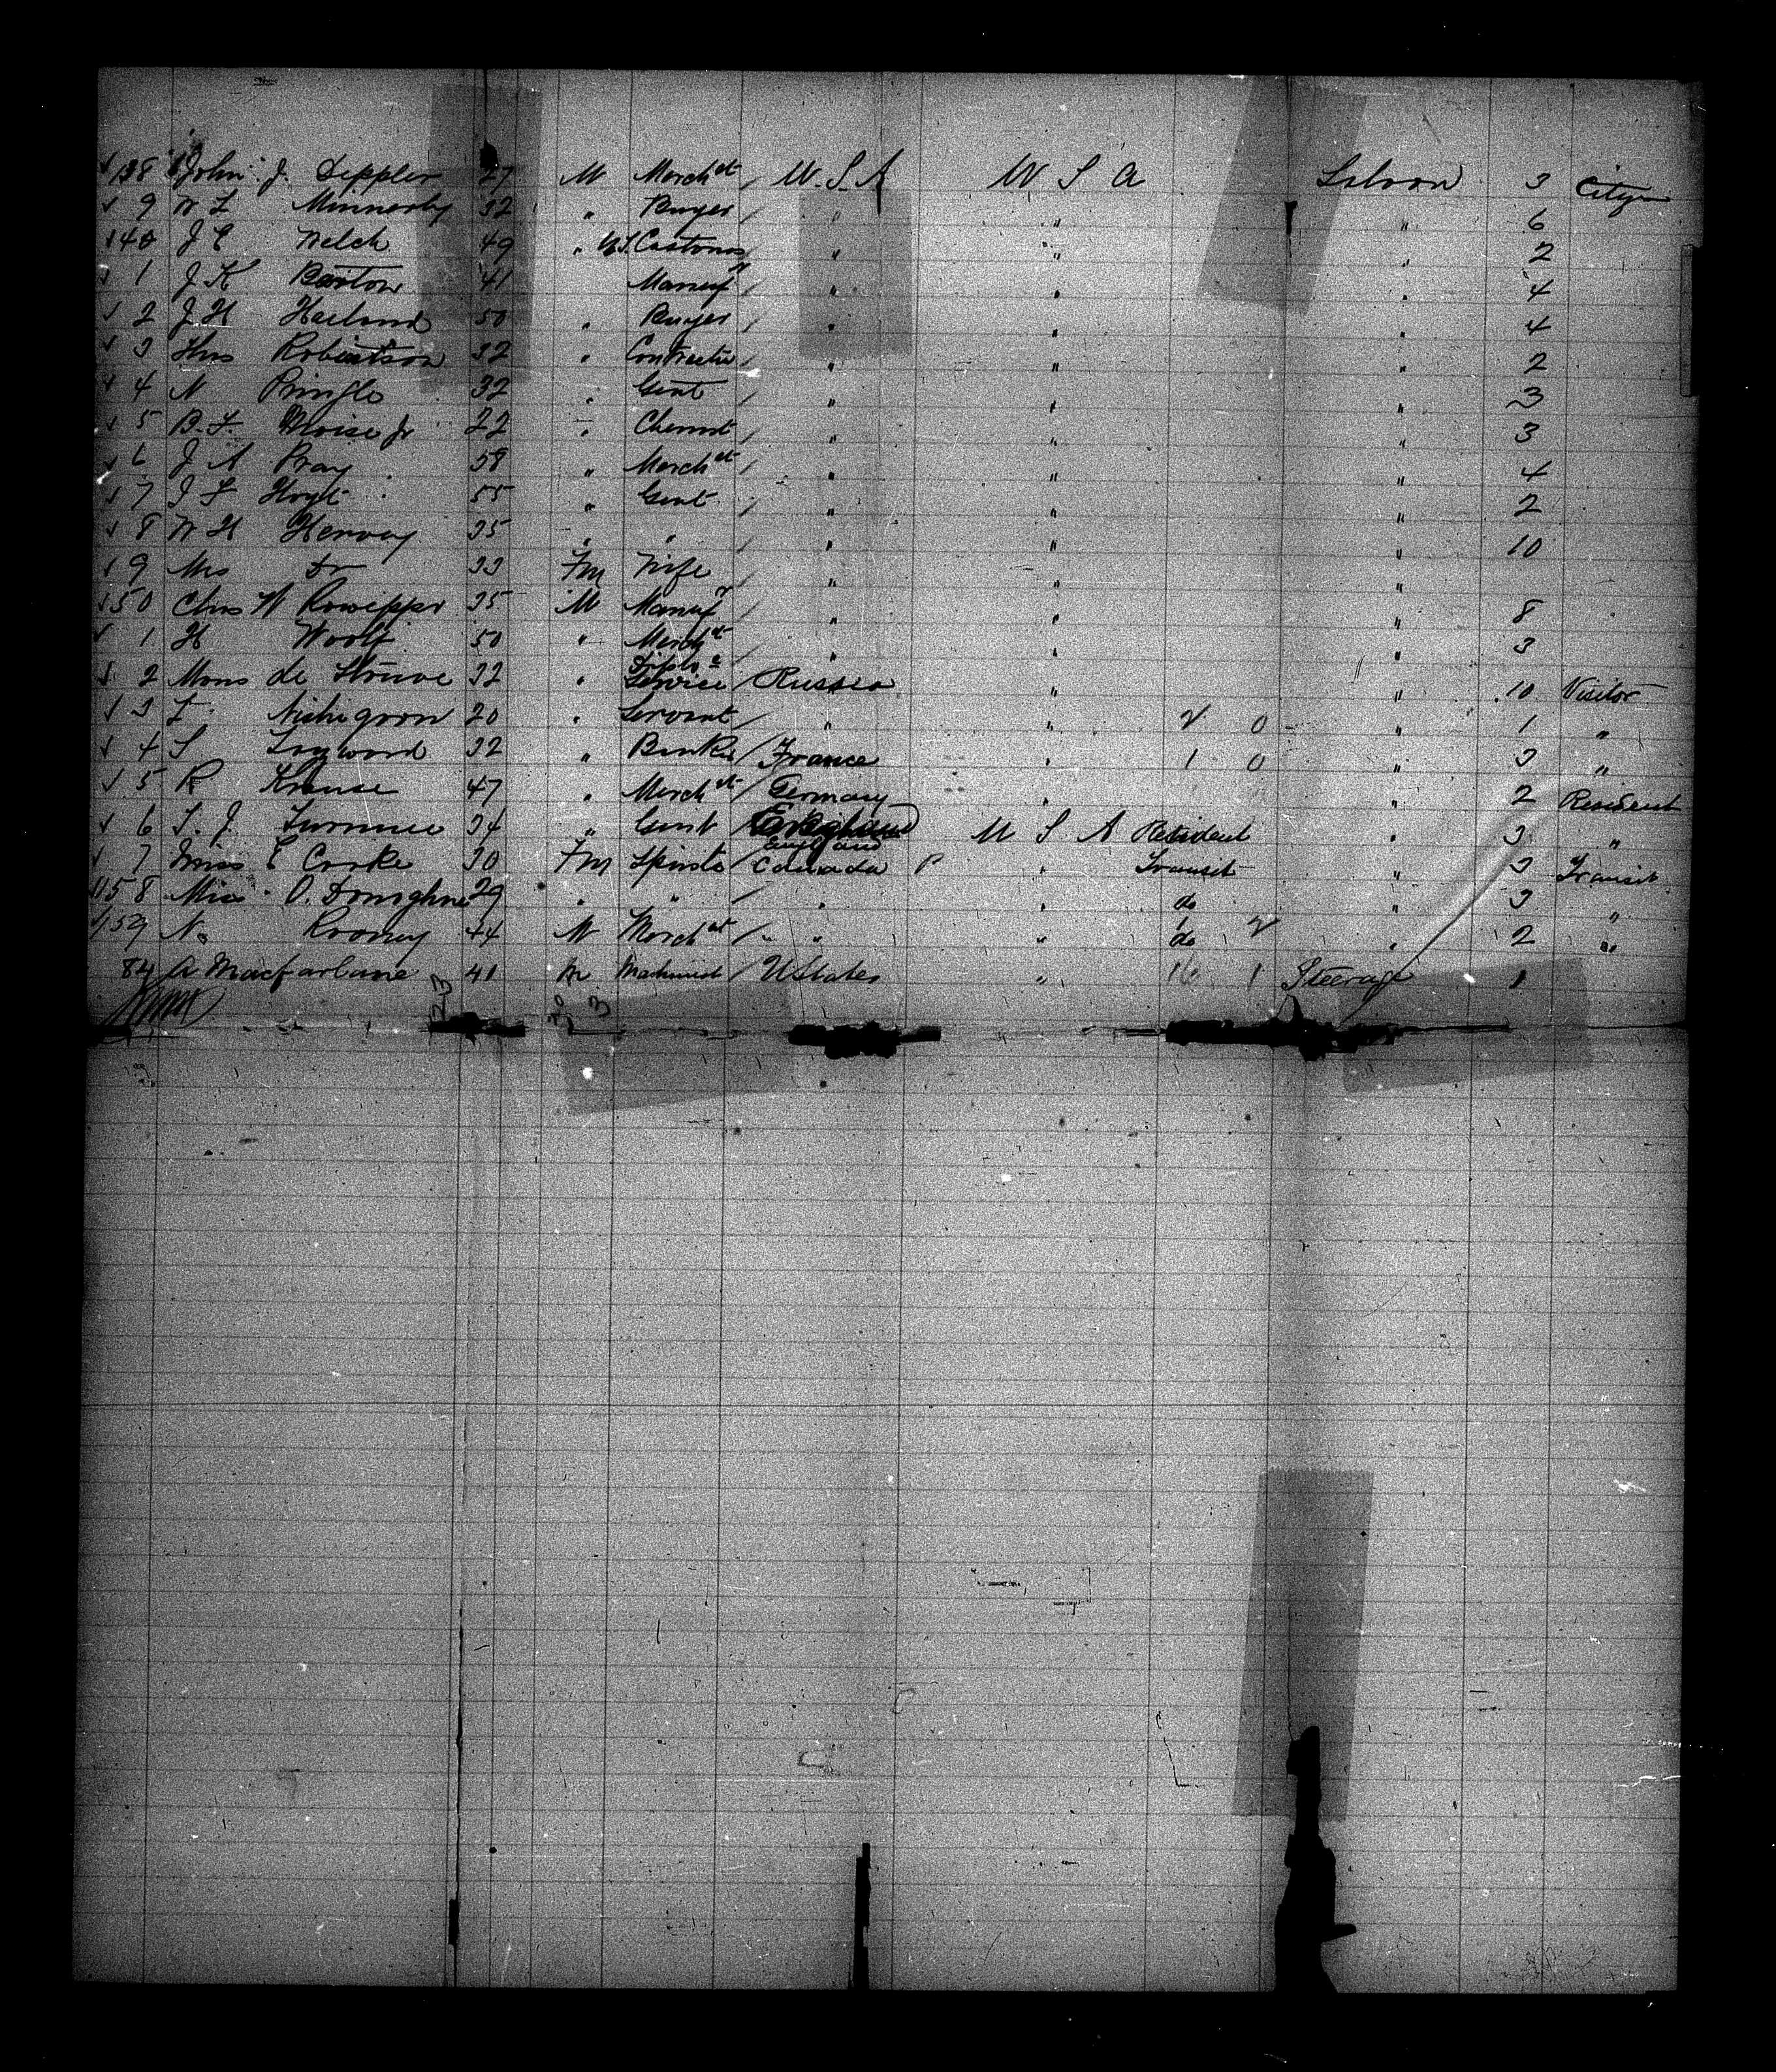 138 John J. Deppler 27 M Merch't U.S.A U S A Saloon 3 City
9 W L Minnerly 32 " Buyer " " " 6
140 J E Welch 49 " U.S. Customs " " " 2
1 J K Barton 41 Manuf'r " " " 4
2 J H Harland 50 " Buyer " " " 4
3 Thos Robertson 32 " Contractor " " " 2
4 N Pringle 32 " Gent " " " 3
5 B. F. Moise Jr 22 " Chemist " " " 3
6 J A Pray 58 " Merch't " " " 4
7 J F Hoyt 55 " Gent " " " 2
8 W H Hervey 35 " " " " " 10
9 Mrs Do 33 Fm Wife " " "
150 Chas W 35 M Manuf'r " " " 8
1 H Woolf 50 " Merch't " " " 3
2 Mons de Struve 32 " Diplo'c Service Russia " " 10 Visitor
3 20 " Servant " " 2 0 " 1 "
4 S 32 " Banker France " 1 0 " 3 "
5 R Krause 47 " Merch't Germany " " 2 Resident
6 34 " Gent England U S A Resident " 3 "
England
7 Miss E Cooke 30 Fm Spinster Canada " Transit " 3 Transit
158 Miss O. Donighue 29 " " " " do " 3 "
159 N. Rooney 44 M Merch't " " do 2 " 2 "
84 A Macfarlane 41 M Machinist U States " 16 1 Steerage 1